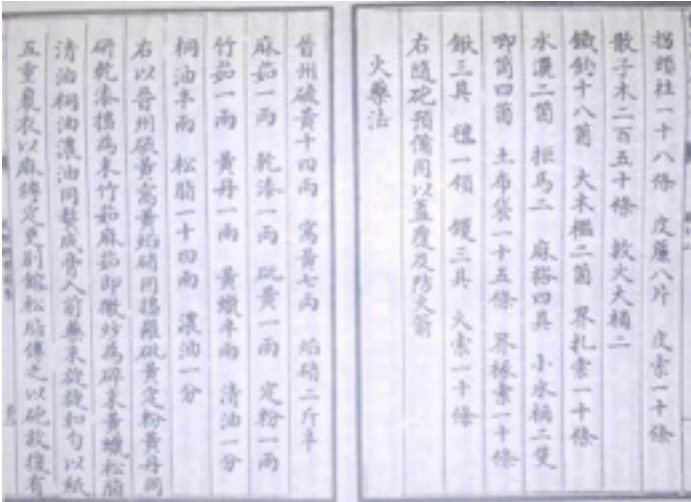 拐頭柱一十八條　皮簾八片　皮索一十條
散子木二百五十條　救火大桶二
鐵鉤十八箇　大木檻二箇　界扎索一十條
水濃二箇　拒馬二　麻搭四具　小水桶二隻
唧筒四箇　土布袋一十五條　界椽索一十條
鍬三具　氊一領　钁三具　火索一十條
右隨砲預備用以蓋覆及防火箭
火藥法
晉州硫黃十四兩　窩黃七兩　焰硝二斤半
麻茹一兩　乾漆一兩　砒黃一兩　定粉一兩
竹茹一兩　黃丹一兩　黃蠟半兩　清油一分
桐油半兩　松脂一十四兩　濃油一分
右以晉州硫黃窩黃焰硝同擣羅砒黃定粉黃丹同
研乾漆擣為末竹茹麻茹即微炒為碎末黃蠟松脂
清油桐油濃油同熬成膏入前藥末旋旋和勻以紙
五重裹衣以麻縛定更別鎔松脂傅之以砲放復有